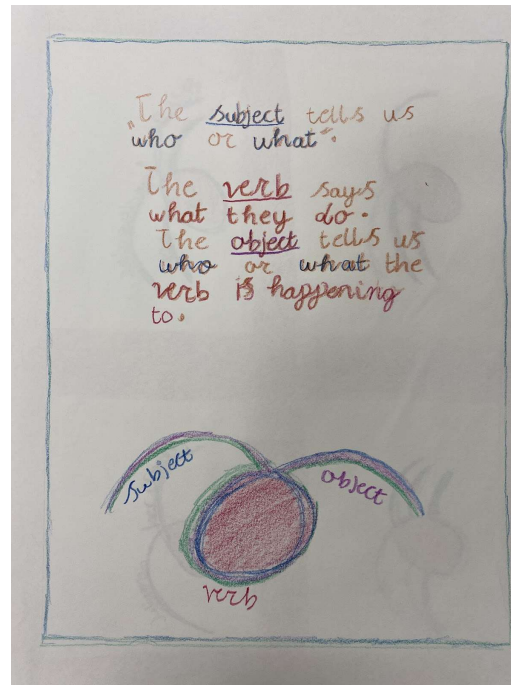 The subject tells us
„who or what“.
The verb says
what they do.
The object tells us
who or what the
verb is happening
to.
subject
object
verb